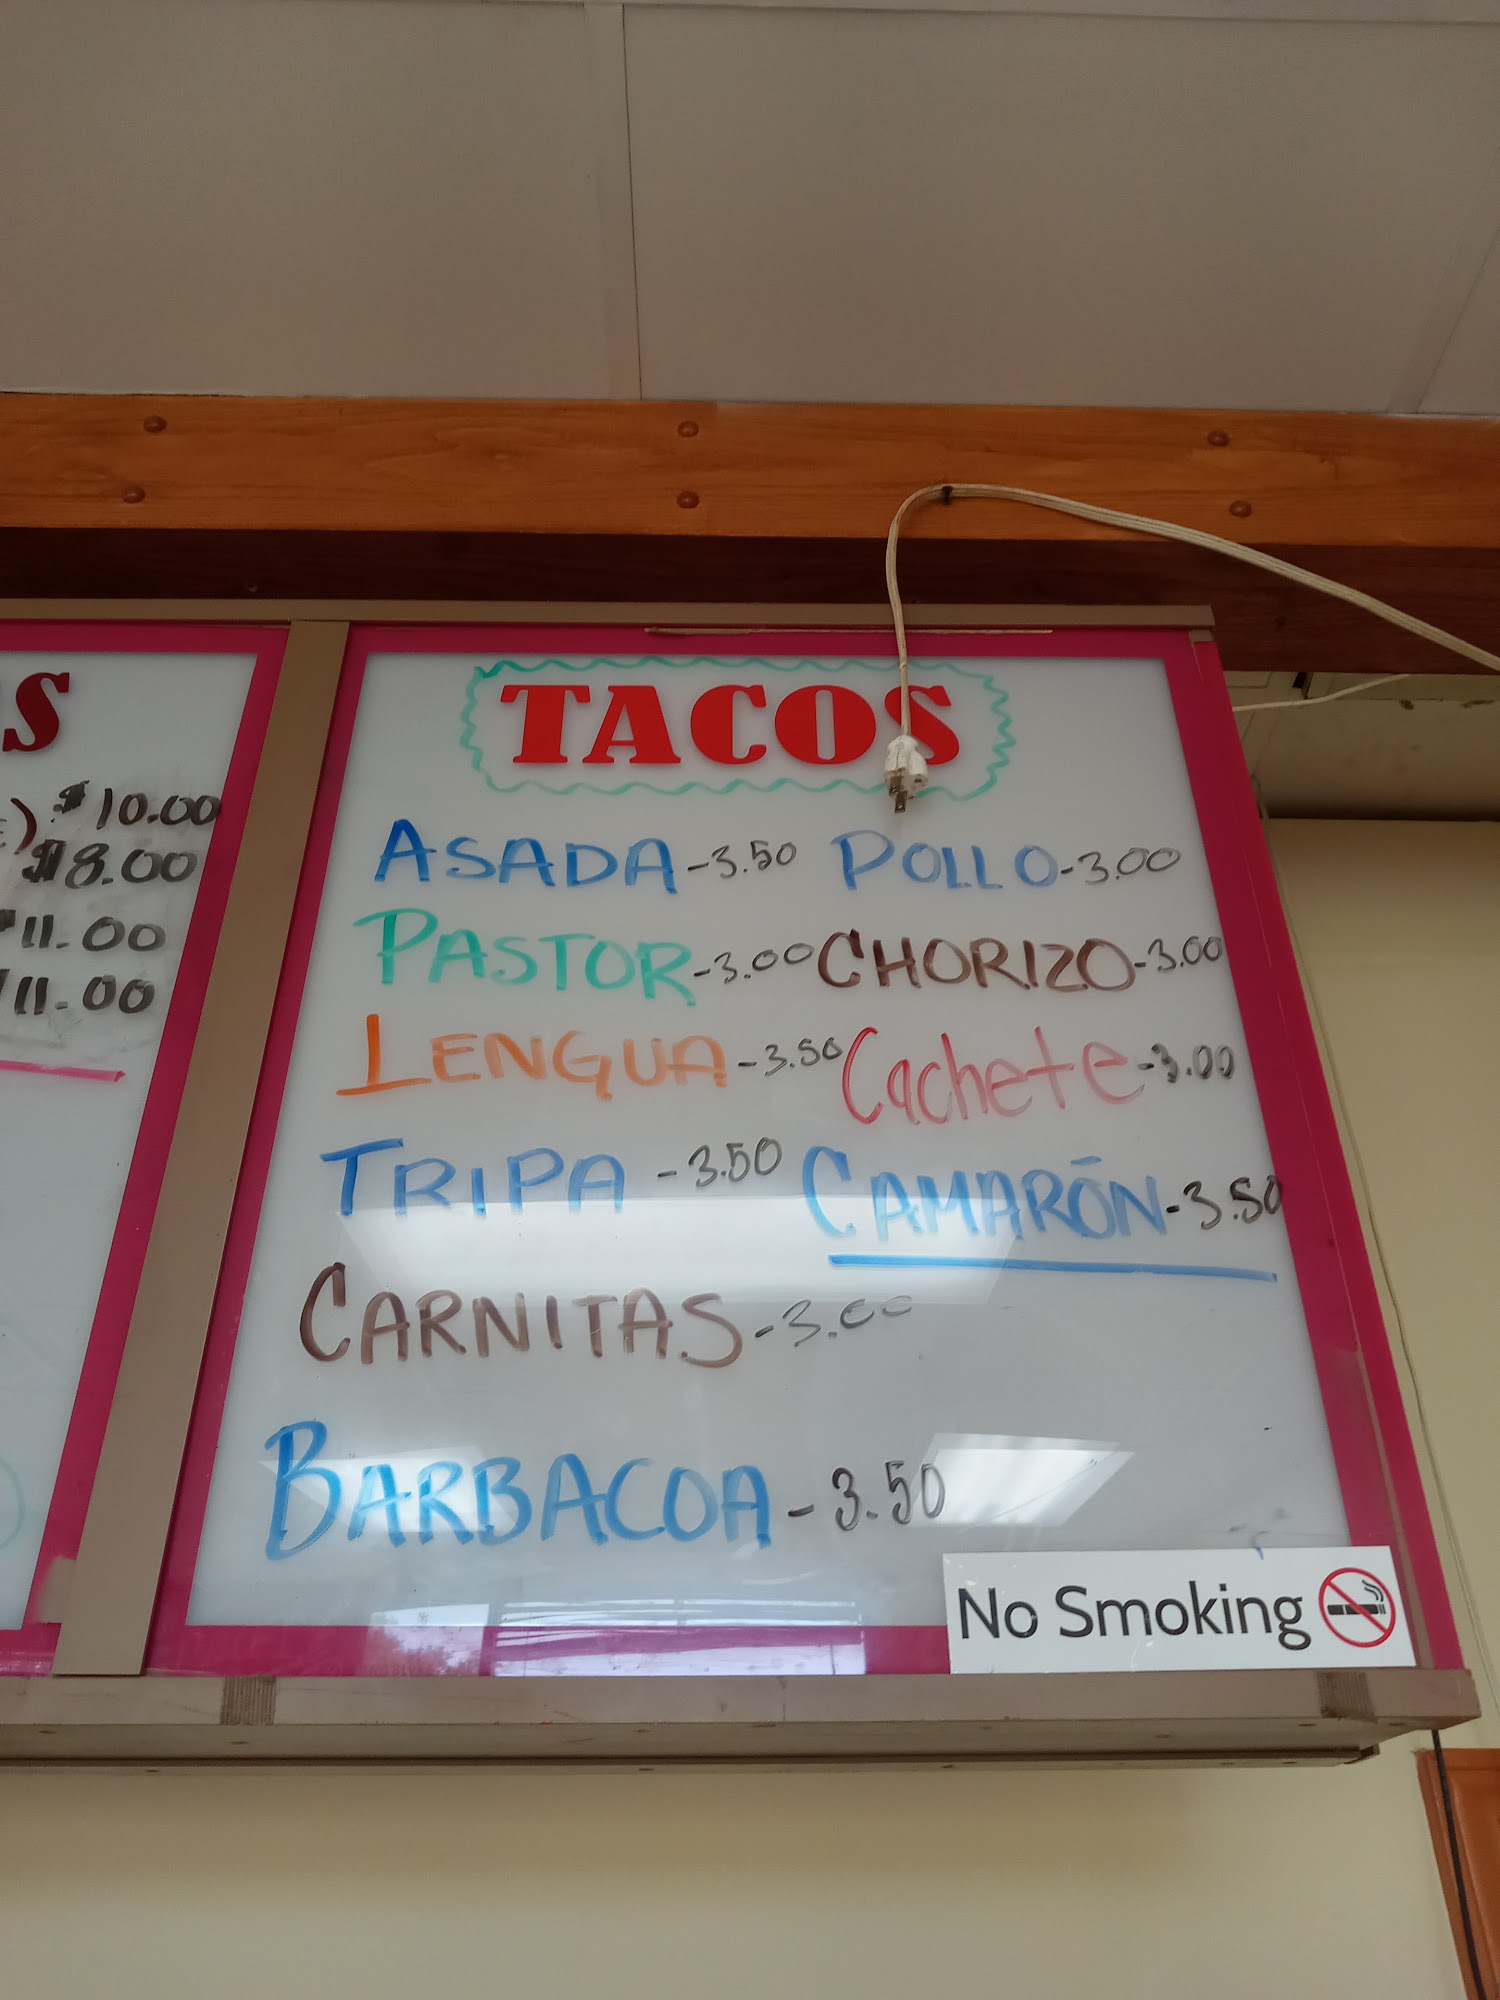 S
$10.00
$8.00
11.00
11.00
TACOS
ASADA-3.50 POLLO-3.00
PASTOR-3.00 CHORIZO-3.00
LENGUA-3.50 Cachete-3.00
TRIPA-3.50 CAMARÓN-3.50
CARNITAS-3.00
BARBACOA-3.50
No Smoking